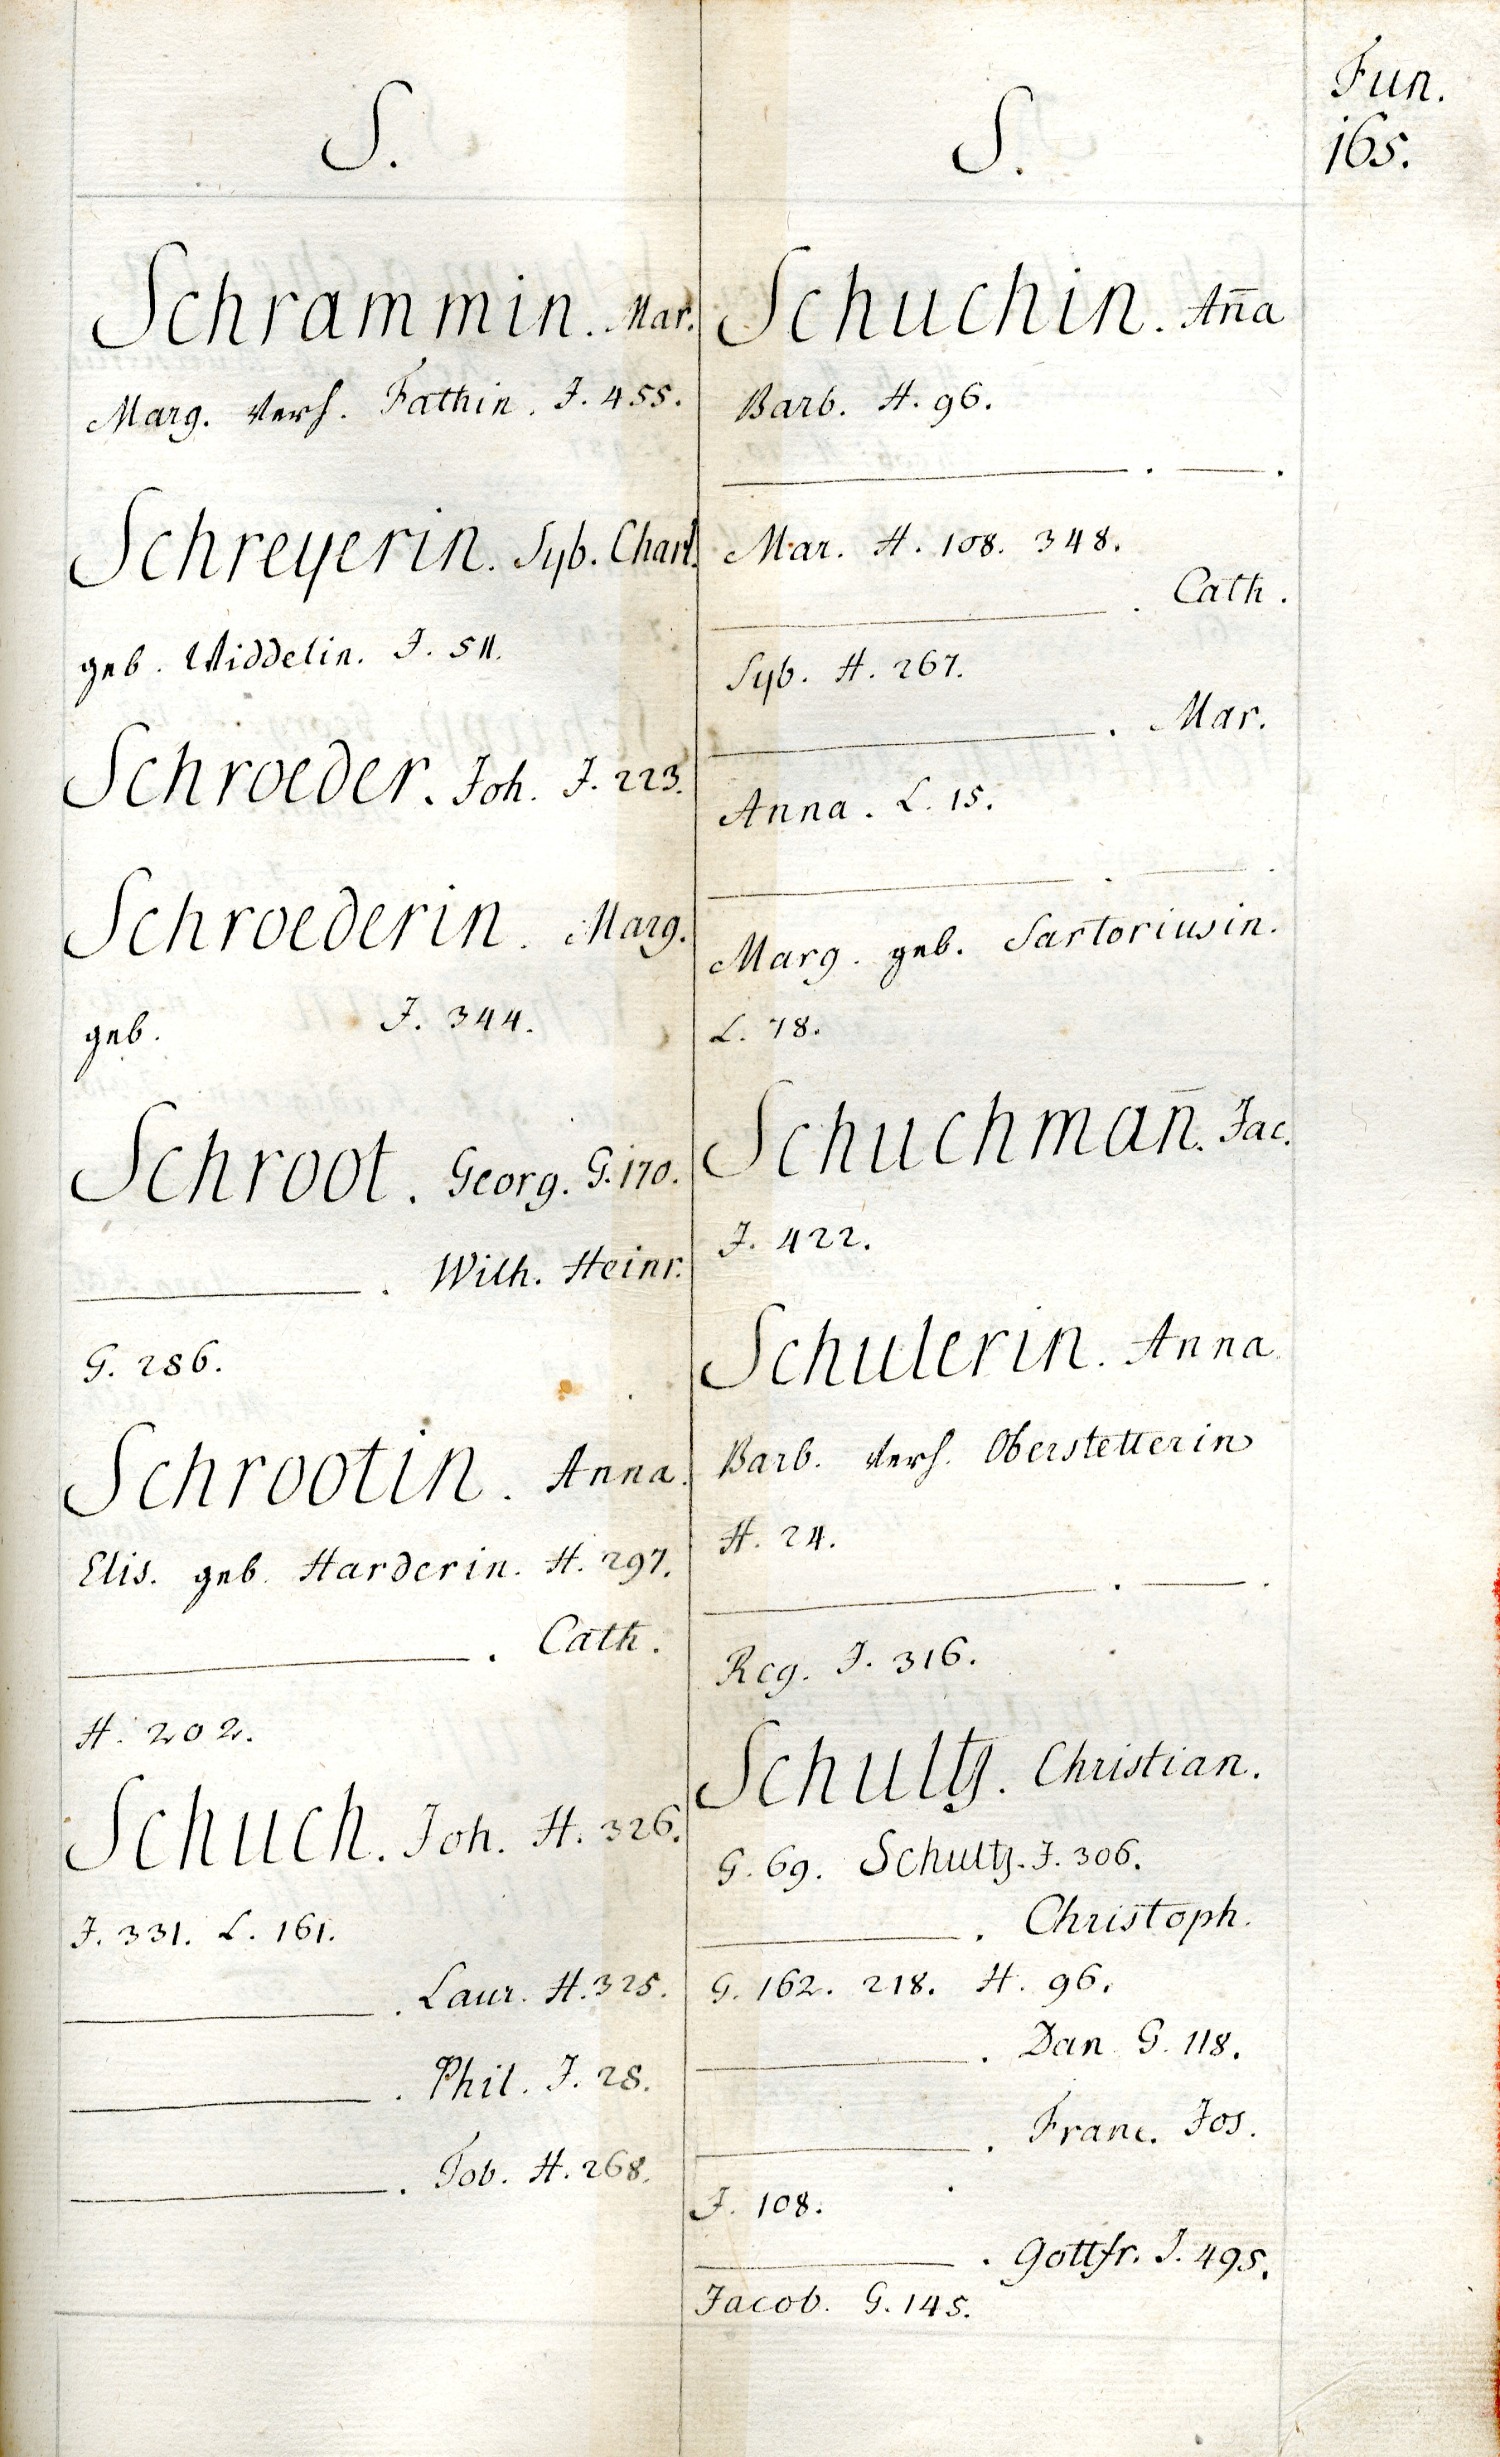 Fun.
165.
S.
Schrammin. Mar.
Marg. verh. Fathin. J. 455.
Schreyerin. Syb. Charl.
geb. Widdelin. J. 511.
Schroeder. Joh. J. 223.
Schroederin. Marg.
geb. J. 344.
Schroot. Georg. G. 170.
———. Wilh. Heinr.
G. 286.
Schrootin. Anna
Elis. geb. Harderin. H. 297.
———. Cath.
H. 202.
Schuch. Joh. H. 326.
J. 331. L. 161.
———. Laur. H. 325.
———. Phil. J. 28.
———. Tob. H. 268.
S.
Schuchin. Aña
Barb. H. 96.
———. ———.
Mar. H. 108. 348.
———. Cath.
Syb. H. 267.
———. Mar.
Anna. L. 15.
———. ———.
Marg. geb. Sartoriusin.
L. 78.
Schuchmañ. Jac.
J. 422.
Schulerin. Anna
Barb. verh. Oberstetterin
H. 24.
———. ———.
Reg. J. 316.
Schultz. Christian.
G. 69. Schultz. J. 306.
———. Christoph.
G. 162. 218. H. 96.
———. Dan G. 118.
———. Franc. Jos.
J. 108.
———. Gottfr. J. 495.
Jacob. G. 145.